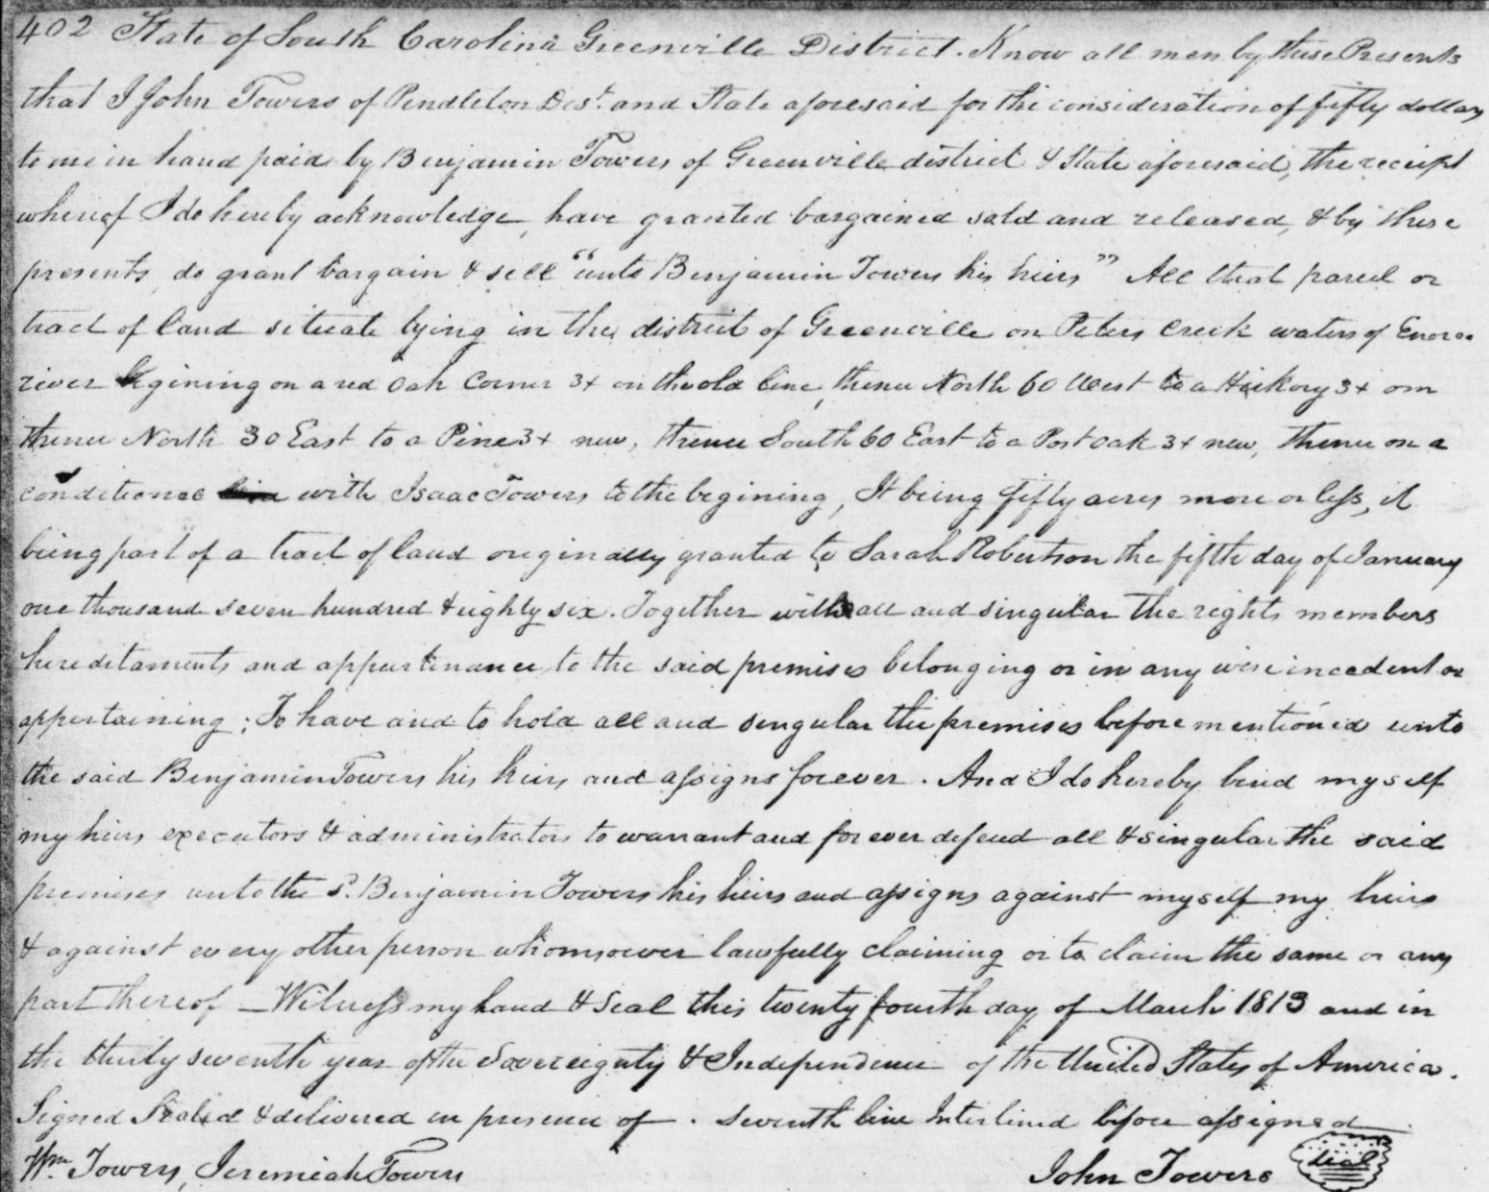 402 State of South Carolina Greenville District. Know all men by these Presents
that I John Towers of Pendleton Dist. and State aforesaid for the consideration of fifty dollars
to me in hand paid by Benjamin Towers of Greenville district & State aforesaid, the receipt
whereof I do hereby acknowledge, have granted bargained sold and released, & by these
presents, do grant bargain & sell "unto Benjamin Towers his heirs" All that parcel or
tract of land situate lying in the district of Greenville on Peters Creek waters of Enoree
river begining on a red Oak Corner 3x on the old line, thence North 60 West to a Hickory 3x om
thence North 30 East to a Pine 3x new, thence South 60 East to a Post oak 3x new, thence on a
conditional line with Isaac Towers to the begining, It being fifty acres more or less, it
being part of a tract of land originally granted to Sarah Robertson the fifth day of January
one thousand seven hundred & eighty six. Together with all and singular the rights members
hereditaments and appurtenances, to the said premises belonging or in any wise incedent or
appertaining; To have and to hold all and singular the premises before mentioned unto
the said Benjamin Towers his heirs and assigns forever. And I do hereby bind myself
my heirs executors & administrators to warrant and forever defend all & singular the said
premises unto the S. Benjamin Towers his heirs and assigns against myself my heirs
& against every other person whomsoever lawfully claiming or to claim the same or any
part thereof — Witness my hand & Seal this twenty fourth day of March 1813 and in
the thirty seventh year of the Sovereignty & Independence of the United States of America.
Signed Sealed & delivered in presence of . Seventh line Interlined before assigned
Wm Towers, Jeremiah Towers John Towers seal